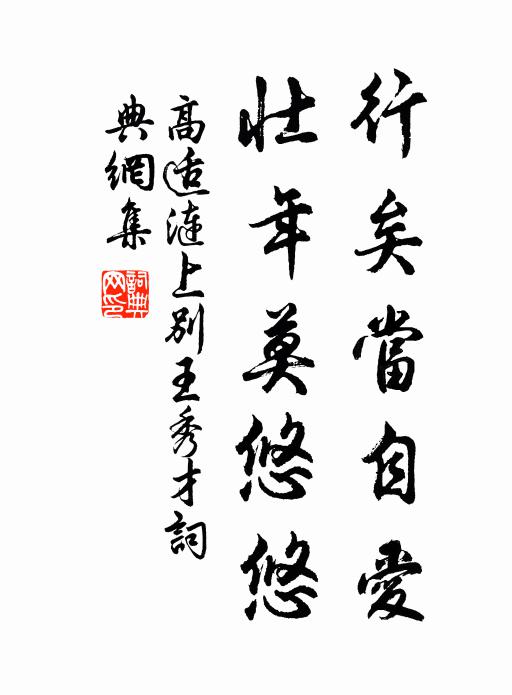 行矣當自愛
壯年莫悠悠
高适漣上別王秀才詞
典網集
詞典網印